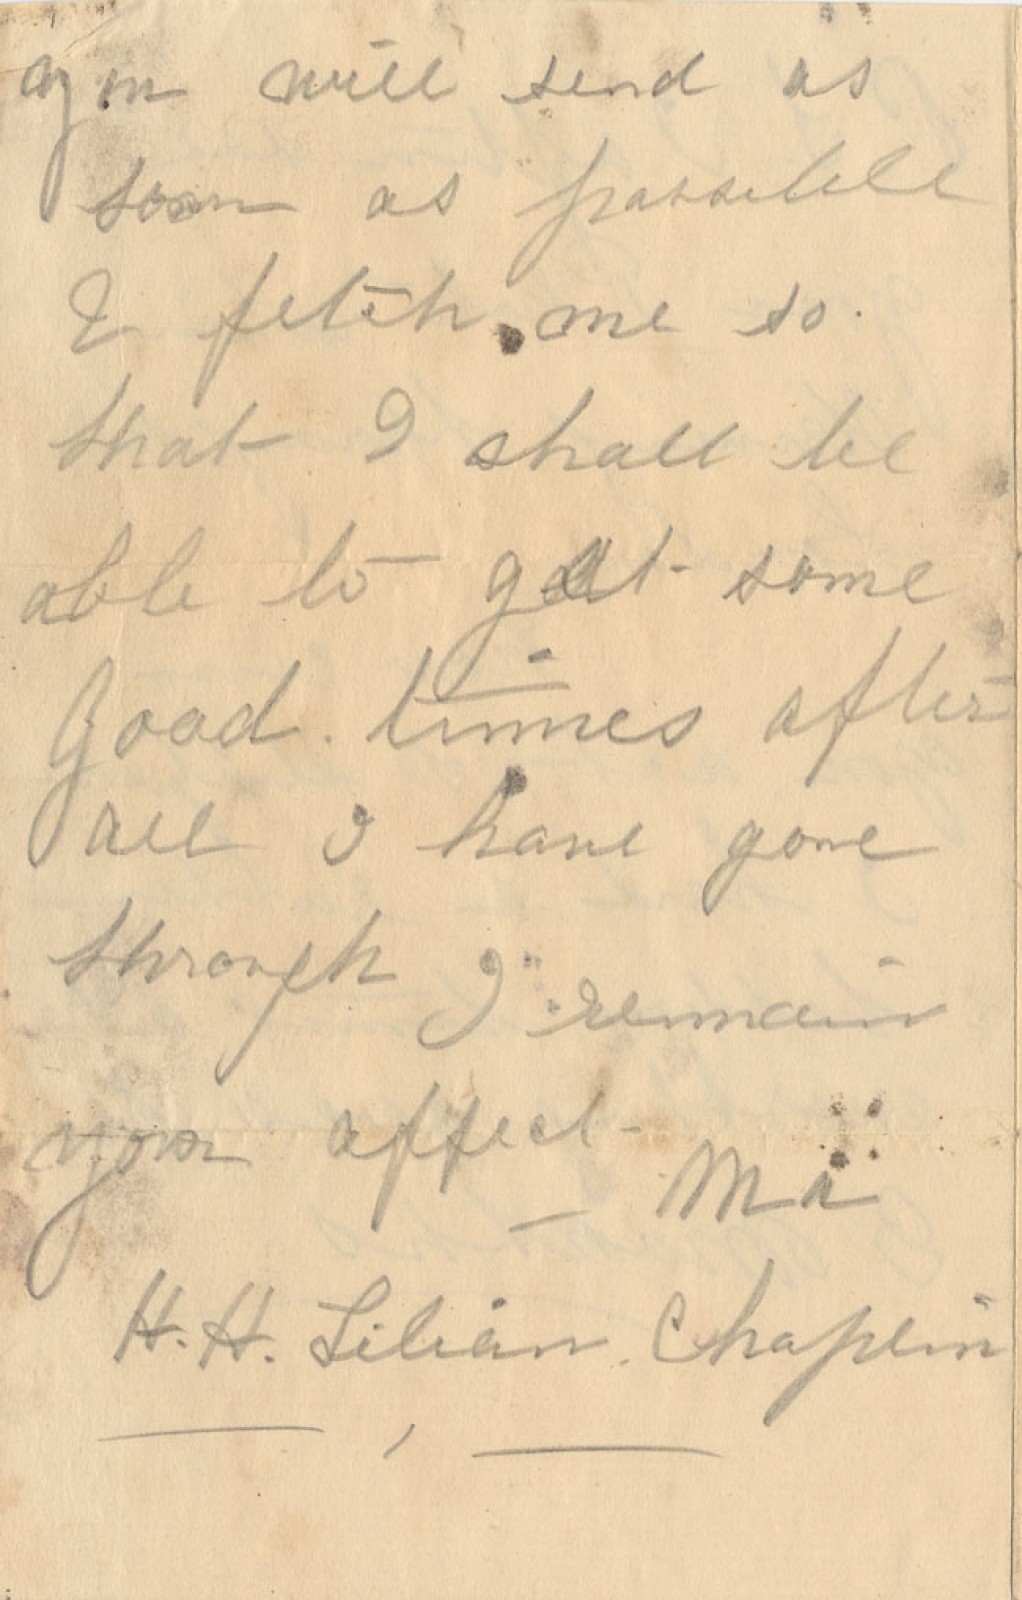 you will send as
soon as possible
& fetch me so
that I shall be
able to get some
Good times after
all I have gone
through I remain
your affect-
— Ma
H. H. Lilian Chaplin